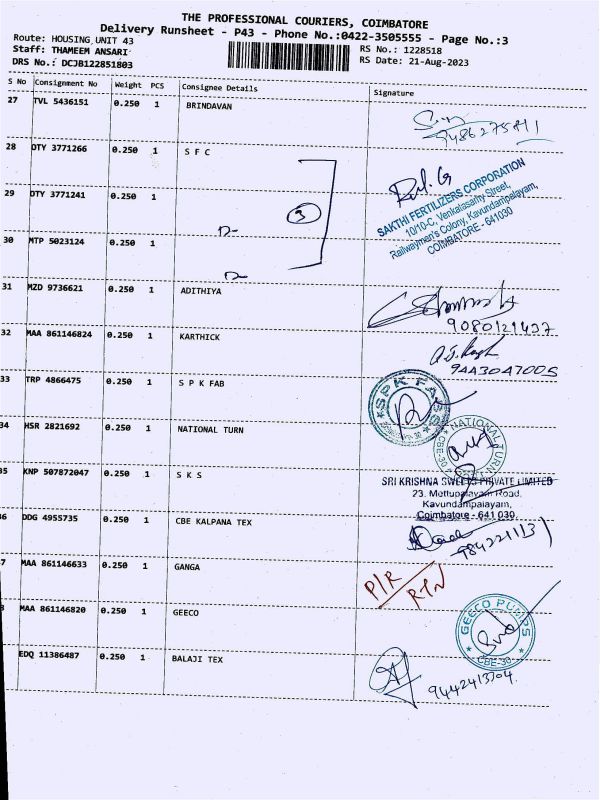 THE PROFESSIONAL COURIERS, COIMBATORE
Delivery Runsheet - P43 - Phone No.:0422-3505555 - Page No.:3
Route: HOUSING UNIT 43
Staff: THAMEEM ANSARI
DRS No.: DCJB122851803
RS No.: 1228518
RS Date: 21-Aug-2023
S No Consignment No Weight PCS Consignee Details Signature
27 TVL 5436151 0.250 1 BRINDAVAN
9486275811
28 OTY 3771266 0.250 1 S F C
29 OTY 3771241 0.250 1
3
SAKTHI FERTILIZERS CORPORATION
10/10-C, Venkatasamy Street,
Railwaymen's Colony, Kavundampalayam,
COIMBATORE - 641030
30 MTP 5023124 0.250 1
31 MZD 9736621 0.250 1 ADITHIYA
9080121437
32 MAA 861146824 0.250 1 KARTHICK
9443047005
33 TRP 4866475 0.250 1 S P K FAB
SPK FABS
34 HSR 2821692 0.250 1 NATIONAL TURN
NATIONAL TURN
CBE-30
35 KNP 507872047 0.250 1 S K S
SRI KRISHNA SWEETS PRIVATE LIMITED
23, Mettupalayam Road,
Kavundampalayam,
Coimbatore - 641 030
36 DDG 4955735 0.250 1 CBE KALPANA TEX
9842211131
7 MAA 861146633 0.250 1 GANGA
P/R
RTN
8 MAA 861146820 0.250 1 GEECO
GEECO PUMPS
CBE-30
EDQ 11386487 0.250 1 BALAJI TEX
9442413704